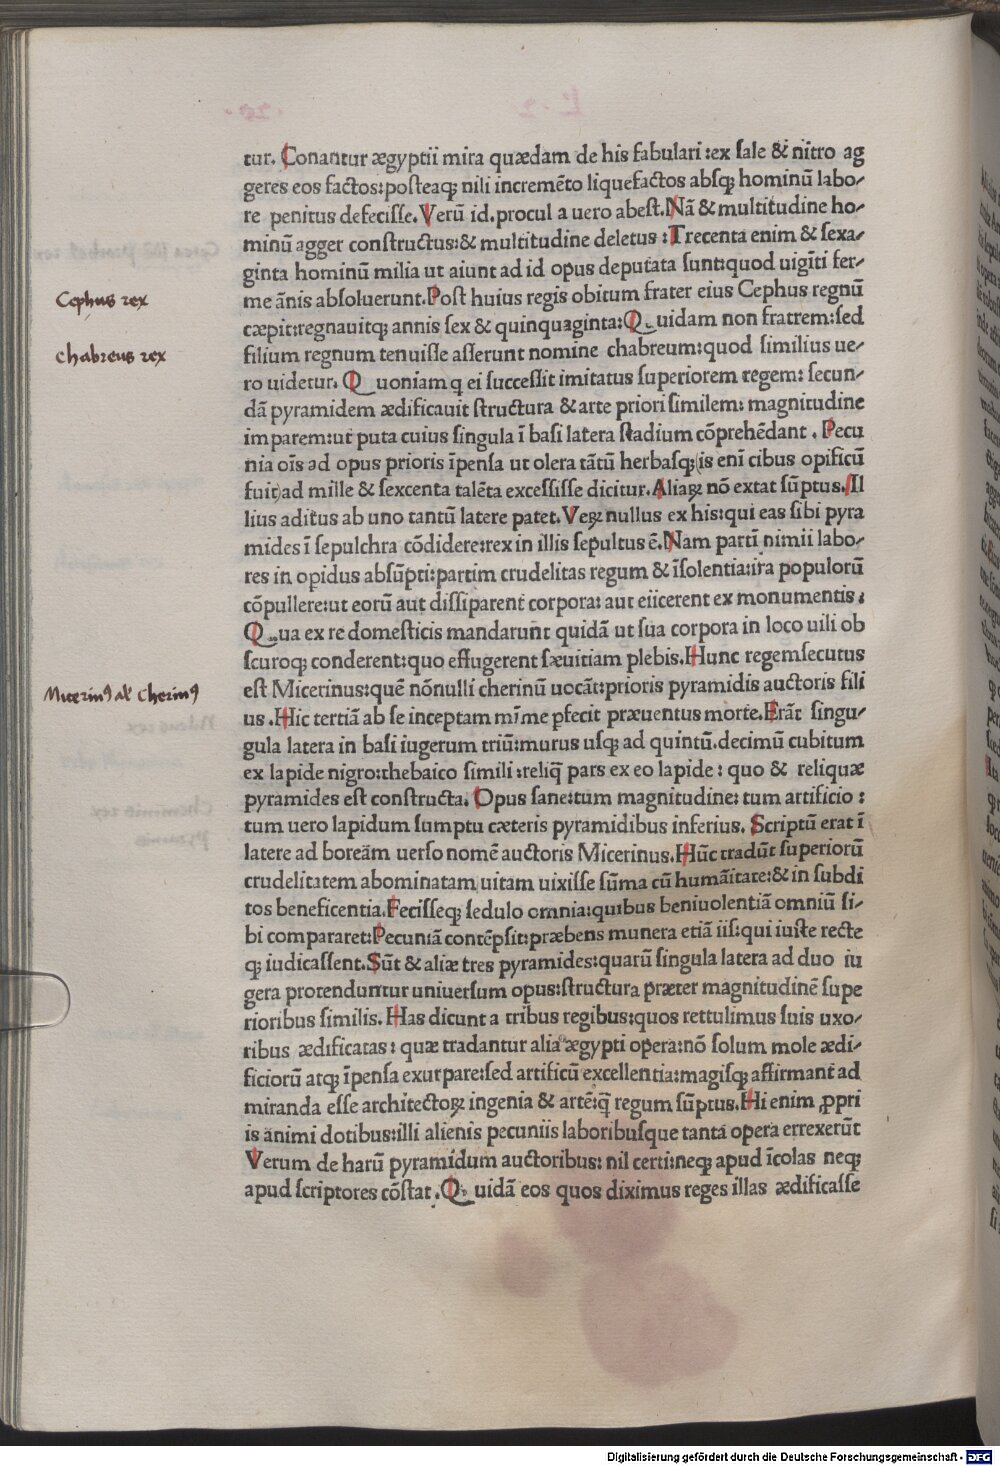 tur. Conantur ægyptii mira quædam de his fabulari:ex sale & nitro ag
geres eos factos:posteaqꝫ nili incremēto liquefactos absqꝫ hominū labo-
re penitus defecisse.Verū id.procul a uero abest.Nā & multitudine ho-
minū agger constructus:& multitudine deletus :Trecenta enim & sexa-
ginta hominū milia ut aiunt ad id opus deputata sunt:quod uigīti fer-
me ānis absoluerunt.Post huius regis obitum frater eius Cephus regnū
Cephus rex
cæpit:regnauitqꝫ annis sex & quinquaginta:Quidam non fratrem:sed
filium regnum tenuisse asserunt nomine chabreum:quod similius ue-
chabreus rex
ro uidetur. Quoniam q ei successit imitatus superiorem regem: secun-
dā pyramidem ædificauit structura & arte priori similem: magnitudine
imparem:ut puta cuius singula ī basi latera stadium cōprehēdant . Pecu
nia oīs ad opus prioris īpensa ut olera tātū herbasqꝫ(is enī cibus opificū
fuit)ad mille & sexcenta talēta excessisse dicitur.Aliaꝝ nō extat sūptus.Il
lius aditus ab uno tantū latere patet.Veꝝ nullus ex his:qui eas sibi pyra
mides ī sepulchra cōdidere:rex in illis sepultus ē.Nam partī nimii labo-
res in opidus absūpti:partim crudelitas regum & īsolentia:ira populorū
cōpullere:ut eorū aut dissiparent corpora: aut eiicerent ex monumentis :
Qua ex re domesticis mandarunt quidā ut sua corpora in loco uili ob
scuroqꝫ conderent:quo effugerent sæuitiam plebis.Hunc regemsecutus
est Micerinus:quē nōnulli cherinū uocāt:prioris pyramidis auctoris fili
Micerinꝰ al' Cherinꝰ
us .Hic tertiā ab se inceptam mīme pfecit præuentus morte.Erāt singu-
gula latera in basi iugerum triū:murus usqꝫ ad quintū.decimū cubitum
ex lapide nigro:thebaico simili :reliq̄ pars ex eo lapide : quo & reliquæ
pyramides est constructa. Opus sane:tum magnitudine: tum artificio :
tum uero lapidum sumptu cæteris pyramidibus inferius. Scriptū erat ī
latere ad boreām uerso nomē auctoris Micerinus.Hūc tradūt superiorū
crudelitatem abominatam uitam uixisse sūma cū humāitate:& in subdi
tos beneficentia.Fecisseqꝫ sedulo omnia:quibus beniuolentiā omniū si-
bi compararet:Pecuniā contēpsit:præbens munera etiā iis:qui iuste recte
qꝫ iudicassent.Sūt & aliæ tres pyramides:quarū singula latera ad duo iu
gera protenduntur uniuersum opus:structura præter magnitudinē supe
rioribus similis. Has dicunt a tribus regibus:quos rettulimus suis uxo-
ribus ædificatas : quæ tradantur alia ægypti opera:nō solum mole ædi-
ficiorū atqꝫ īpensa exutpare:sed artificū excellentia:magisqꝫ affirmant ad
miranda esse architectoꝝ ingenia & artē:q̄ regum sūptus.Hi enim ꝓpri
is animi dotibus:illi alienis pecuniis laboribusque tanta opera errexerūt
Verum de harū pyramidum auctoribus: nil certi:neqꝫ apud īcolas neqꝫ
apud scriptores cōstat .Quidā eos quos diximus reges illas ædificasse
Digitalisierung gefördert durch die Deutsche Forschungsgemeinschaft - DFG